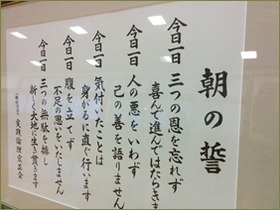 朝の誓
今日一日 三つの恩を忘れず
喜んで進んではたらきま
今日一日 人の悪をいわず
己の善を語りません
今日一日 気付いたことは
身がるに直ぐ行います
今日一日 腹を立てず
不足の思いをいたしません
今日一日 三つの無駄を排し
新しく大地に生き貫きます
実践倫理宏正会